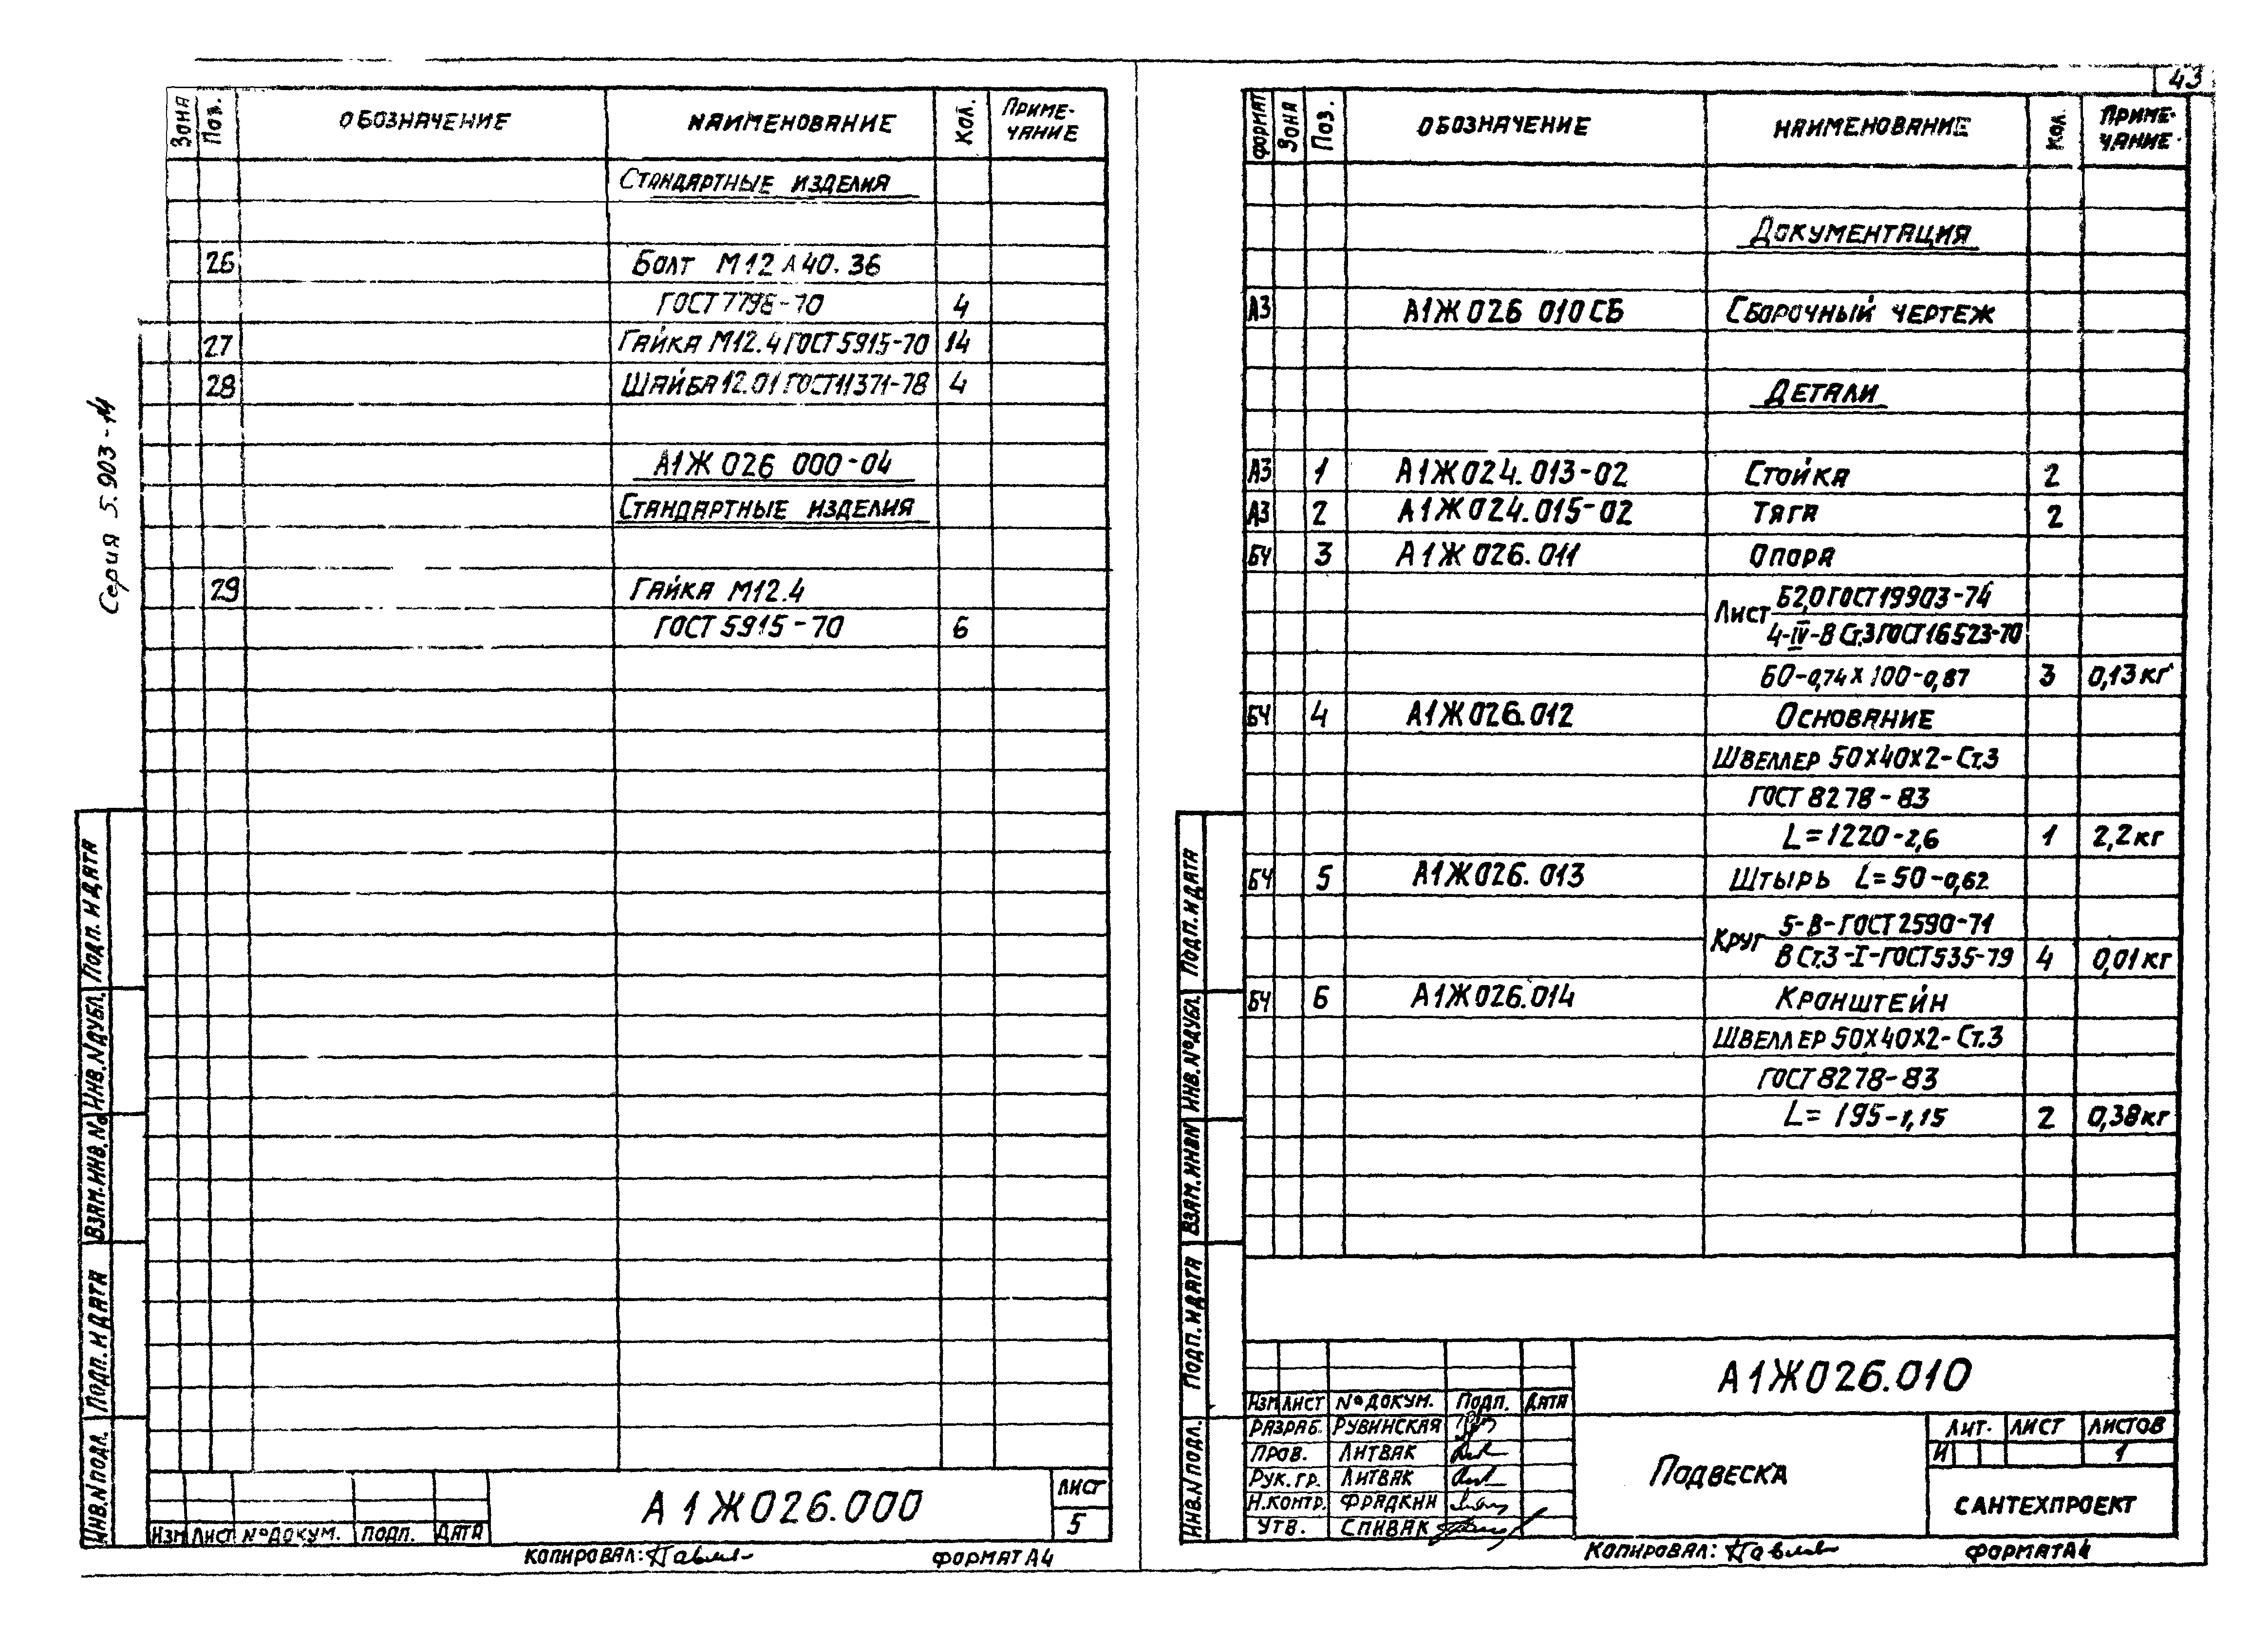 43
Серия 5.903-14
Зона Поз. ОБОЗНАЧЕНИЕ НАИМЕНОВАНИЕ Кол. ПРИМЕ-
ЧАНИЕ
СТАНДАРТНЫЕ ИЗДЕЛИЯ
26 Болт М12 А 40.36
ГОСТ 7798-70 4
27 ГАЙКА М12.4 ГОСТ 5915-70 14
28 ШАЙБА 12.01 ГОСТ 11371-78 4
А1Ж 026 000-04
СТАНДАРТНЫЕ ИЗДЕЛИЯ
29 ГАЙКА М12.4
ГОСТ 5915-70 6
ПОДП. И ДАТА
ИНВ.N ДУБЛ.
ВЗАМ.ИНВ.No
ПОДП. И ДАТА
ИНВ.N ПОДЛ.
ИЗМ ЛИСТ № ДОКУМ. ПОДП. ДАТА
А1Ж026.000
ЛИСТ
5
КОПИРОВАЛ: ФОРМАТ А4
ФОРМАТ Зона Поз. ОБОЗНАЧЕНИЕ НАИМЕНОВАНИЕ Кол. ПРИМЕ-
ЧАНИЕ
ДОКУМЕНТАЦИЯ
А3 А1Ж 026 010 СБ СБОРОЧНЫЙ ЧЕРТЕЖ
ДЕТАЛИ
А3 1 А1Ж 024.013-02 СТОЙКА 2
А3 2 А1Ж 024.015-02 ТЯГА 2
БЧ 3 А1Ж 026.011 ОПОРА
Лист Б2,0 ГОСТ 19903-74
4-IV-В Ст.3 ГОСТ 16523-70
60-0,74 Х 100-0,87 3 0,13 кг
БЧ 4 А1Ж 026.012 ОСНОВАНИЕ
ШВЕЛЛЕР 50Х40Х2-Ст.3
ГОСТ 8278-83
L=1220-2,6 1 2,2 кг
БЧ 5 А1Ж 026.013 ШТЫРЬ L=50-0,62
КРУГ 5-В-ГОСТ 2590-71
В Ст.3-I-ГОСТ 535-79 4 0,01 кг
БЧ 6 А1Ж026.014 КРОНШТЕЙН
ШВЕЛЛЕР 50Х40Х2-Ст.3
ГОСТ 8278-83
L=195-1,15 2 0,38 кг
ПОДП. И ДАТА
ИНВ.№ ДУБЛ.
ВЗАМ.ИНВ N
ПОДП. И ДАТА
ИНВ.N ПОДЛ.
А1Ж026.010
ИЗМ ЛИСТ № ДОКУМ. ПОДП. ДАТА
РАЗРАБ. РУВИНСКАЯ
ПРОВ. ЛИТВАК
РУК. ГР. ЛИТВАК
Н.КОНТР. ФРАДКИН
УТВ. СПИВАК
ПОДВЕСКА
ЛИТ. ЛИСТ ЛИСТОВ
И 1
САНТЕХПРОЕКТ
КОПИРОВАЛ: ФОРМАТ А4